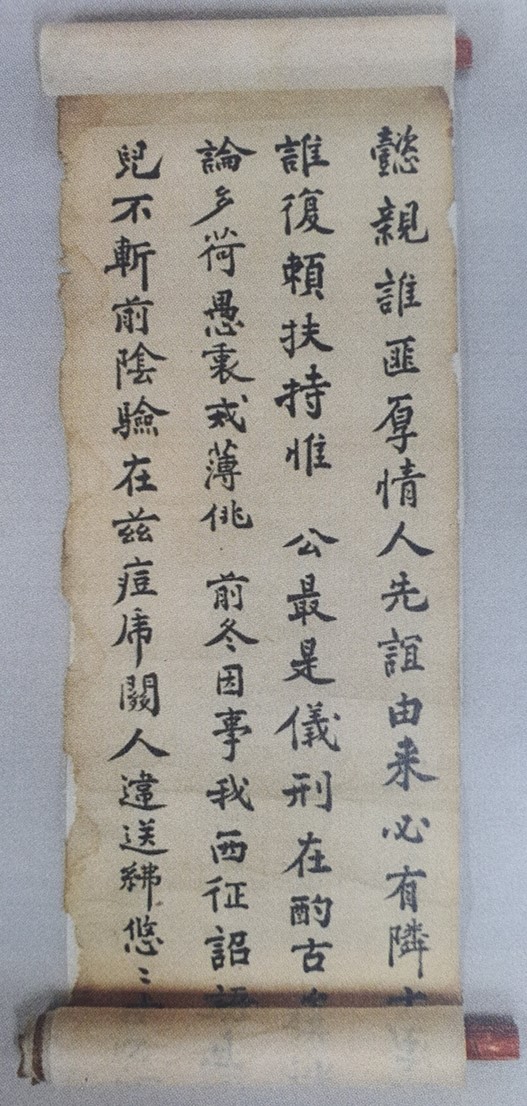 懿親誰匪厚情人先誼由来必有隣
誰復頼扶持惟 公最是儀刑在酌古
論多荷愚衷戒薄俗 前冬因事我西征詔語
兒不斬前陰驗在茲痘席闕人違送紼悠〻